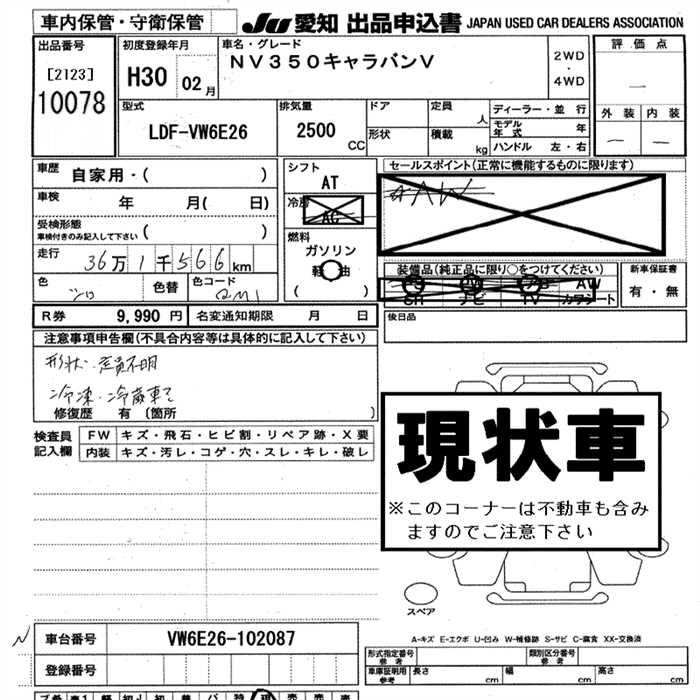 車内保管・守衛保管
JU 愛知 出品申込書 JAPAN USED CAR DEALERS ASSOCIATION
出品番号
[2123]
10078
初度登録年月
H30 02月
車名・グレード
NV350キャラバンV
2WD
・
4WD
評価点
外装 内装
型式
LDF-VW6E26
排気量
2500
CC
ドア
形状
定員
人
積載
kg
ディーラー・並行
モデル年式 年
ハンドル 左・右
車歴
自家用・( )
車検
年 月( 日)
受検形態
車検付きのみ記入して下さい ( )
走行
36万1千566km
色
シロ
色替
色コード
QM1
シフト
AT
冷房
AC
燃料
ガソリン
軽油
( )
セールスポイント(正常に機能するものに限ります)
AW
装備品(純正品に限り○をつけてください)
AW
SR ナビ TV カワシート
新車保証書
有・無
後日品
R券 9,990円
名変通知期限 月 日
注意事項申告欄(不具合内容等は具体的に記入して下さい)
形状・定員不明
冷凍・冷蔵車で
修復歴 有 〔箇所 〕
検査員記入欄
FW キズ・飛石・ヒビ割・リペア跡・X要
内装 キズ・汚レ・コゲ・穴・スレ・キレ・破レ
現状車
※このコーナーは不動車も含み
ますのでご注意下さい
スペア
A-キズ E-エクボ U-凹み W-補修跡 S-サビ C-腐食 XX-交換済
N
車台番号 VW6E26-102087
登録番号
形式指定番号
参考
類別区分番号
参考
車庫証明用
参考
長さ cm
幅 cm
高さ cm